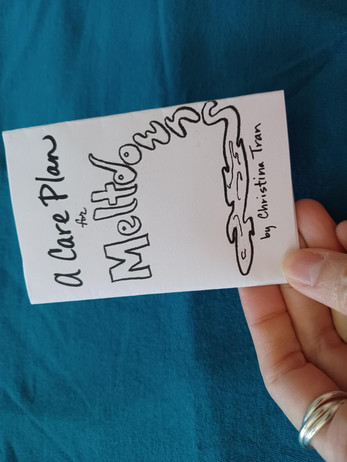 A Care Plan
for
Meltdowns
by Christina Tran